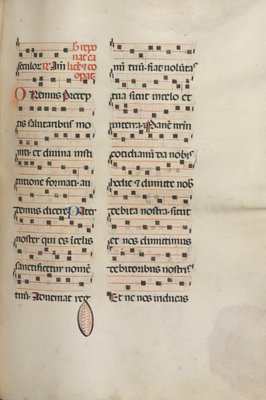 seculor
Oremus Precep
tis salutaribus mo
niti et divina insti
tutione formati au
demus dicere Pater
noster qui es i celis
sanctificetur nomē
tuū Adveniat reg
mi tuū fiat volūtas
tua sicut i celo et
in terra Panē nrm
cotidianū da nobis
hodie et dimitte nob
debita nostra sicut
et nos dimittimus
debitoribus nostris
Et ne nos inducas